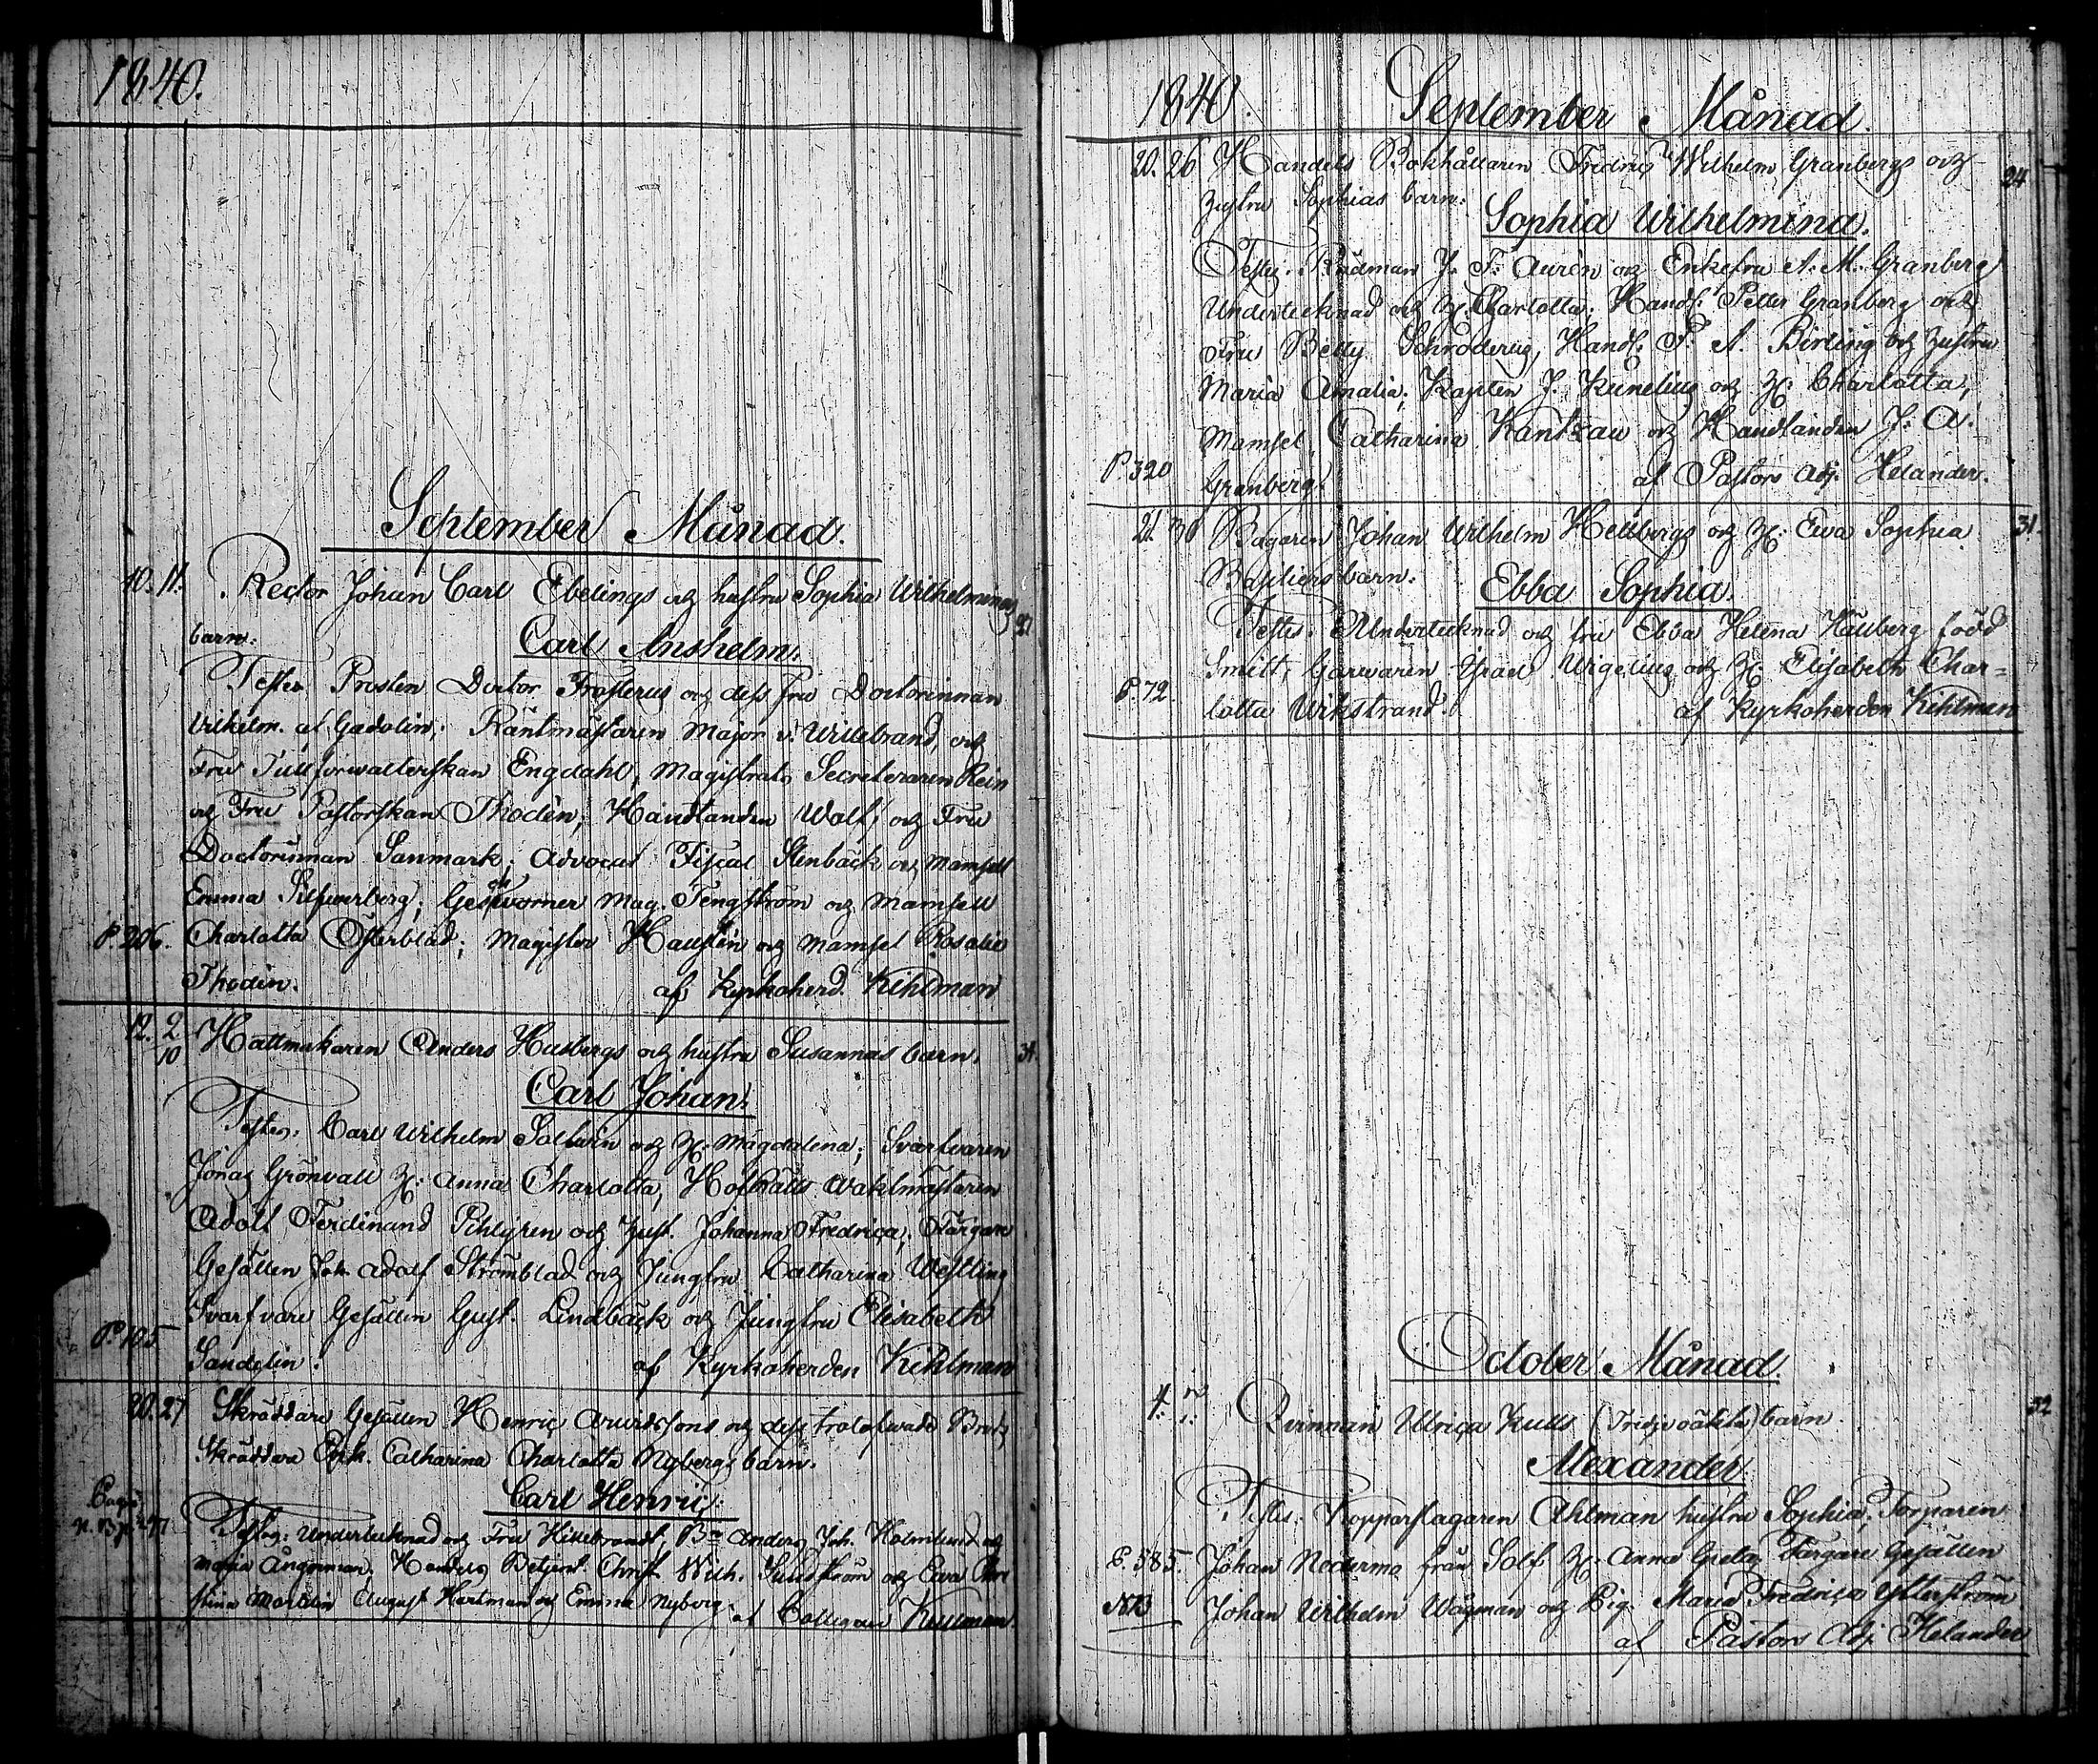 1840.
September Månad.
10. 11. Rector Johan Carl Ebelings och hustru Sophia Wilhelminas 27
barn:
Carl Anshelm.
Testes. Prosten Doctor Frosterus och dess fru Doctorinnan
Vilhelm. af Gadolin; Räntmästaren Major v. Willebrand, och
Fru Tullförwalterskan Engdahl; Magistrats Secreteraren Rein
och Fru Pastorskan Thodén; Handlanden Wolf, och Fru
Doctorinnan Sanmark; Advocat Fiscal Stenbäck och Mamsell
Emma Silfwerberg; Geschworner Mag. Tengström och Mamsell
P. 206. Charlotta Österblad; Magister Haustén och Mamsel Rosalie
Thodén. af Kyrkoherd. Kihlman
12. 2/10 Hattmakaren Anders Husbergs och hustru Susannas barn. 34.
Carl Johan.
Testes. Carl Wilhelm och H: Magdalena; Svarfvaren
Jonas Grönvall H: Anna Charlotta, Hofrätts Vaktmästaren
Adolf Ferdinand Pihlgren och hust. Johanna Fredrica; Färgare
Gesällen Joh. Adolf Strömblad och Jungfru Catharina Westling
Svarfvare Gesällen Gust. Lindbäck och Jungfru Elisabeth
P. 105 Sandelin. af Kyrkoherden Kihlman
20. 27 Skräddare Gesällen Henric Arwidssons och dess trolofwade Brud
Skräddare Catharina Charlotta Nybergs barn.
Carl Henric.
Testes: Undertecknad och Fru Hildebrandt, Anders Joh. Holmlund och
Maria Ångerman. Handels Betjent Christ. Wilh. Sundström och Ewa Chri
stina August Hartman och Emma Nyberg. af Collegan Kjellman.
1840. September Månad.
20. 26 Handels Bokhållaren Fredric Wilhelm Granbergs och 24
hustru Sophias barn:
Sophia Wilhelmina.
Testes. Rådman J. F. Aurén och Enkefru A. M. Granberg
Undertecknad och H. Charlotta; Handl. Petter Granberg och
Fru Betty Schroderus, Handl. P. A. Birling och hustru
Maria Amalia; Kapten J. Kunelius och H: Charlotta;
Mamsel Catharina Rantzau och Handlanden J. A.
P. 320 Granberg. af Pastors Adj. Helander.
21. 30 Bagaren Johan Wilhelm Hellbergs och H: Ewa Sophia 31.
Basiliers barn:
Ebba Sophia.
Testes. Undertecknad och fru Ebba Helena född
Smitt; Garwaren Israel Wigelius och H: Elisabeth Char=
P. 72. lotta Wikstrand. af Kyrkoherden Kihlman
October Månad.
Qvinnan Ulrica Kulls (Tredje oäkta) barn. 32
Alexander
Testes. Kopparslagaren Ahlman hustru Sophia; Torparen
P. 585. Johan från Solf H: Anna Greta; Färgare Gesällen
Johan Wilhelm Wägman och Pig. Maria Fredrica Ytterström
af Pastors Adj. Helander